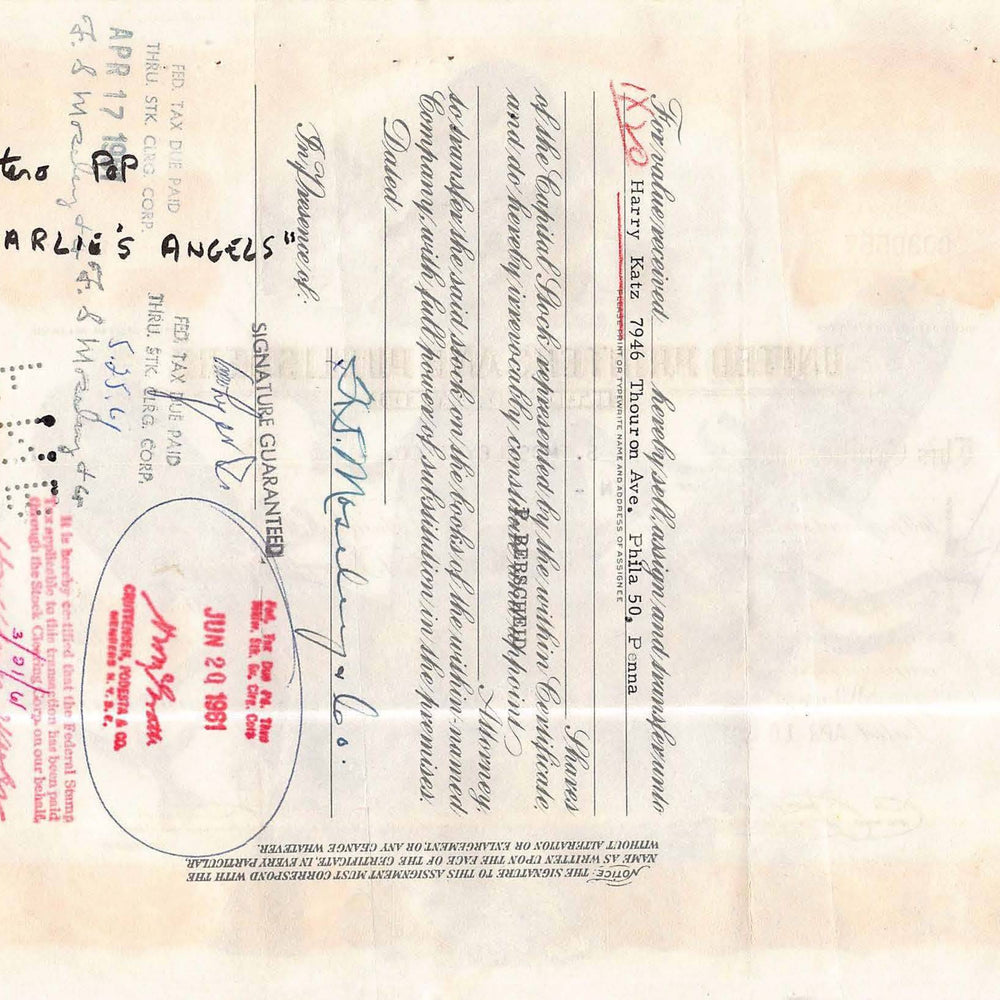 For value received hereby sell, assign and transfer unto
1X20 Harry Katz 7946 Thouron Ave. Phila 50, Penna
PLEASE PRINT OR TYPEWRITE NAME AND ADDRESS OF ASSIGNEE
Shares
of the Capital Stock represented by the within Certificate,
and do hereby irrevocably constitute and appoint
P. BERSCHEID
Attorney,
to transfer the said stock on the books of the within-named
Company, with full power of substitution in the premises.
Dated
F. S. Moseley & Co.
In Presence of:
SIGNATURE GUARANTEED
FED. TAX DUE PAID
THRU. STK. CLRG. CORP.
APR 17 19
F. S Moseley & Co
FED. TAX DUE PAID
THRU. STK. CLRG. CORP.
5.25.61
F. S Moseley & Co
tero POP
ARLIE'S ANGELS"
Fed. Tax Due Pd. Thru
JUN 20 1961
CRUTTENDEN, PODESTA & CO.
MEMBERS N.Y.S.E.
It is hereby certified that the Federal Stamp
Tax applicable to this transaction has been paid
through the Stock Clearing Corp. on our behalf.
3/21/61
NOTICE: THE SIGNATURE TO THIS ASSIGNMENT MUST CORRESPOND WITH THE
NAME AS WRITTEN UPON THE FACE OF THE CERTIFICATE, IN EVERY PARTICULAR,
WITHOUT ALTERATION OR ENLARGEMENT, OR ANY CHANGE WHATEVER.